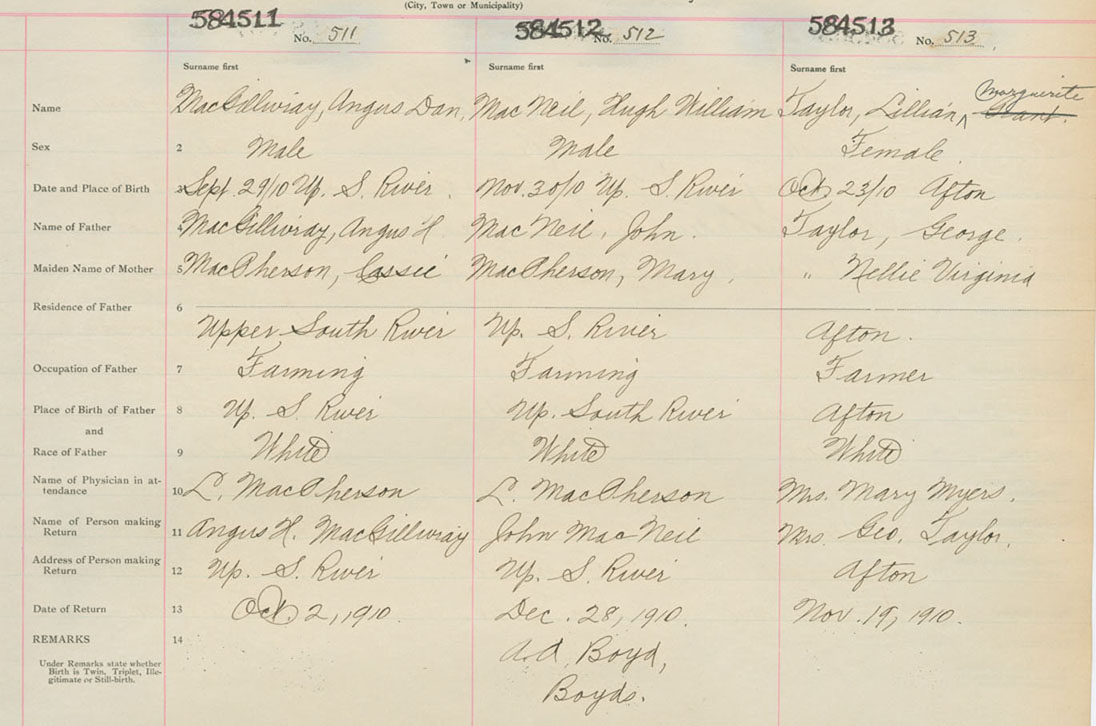 (City, Town or Municipality)
584511 No. 511 584512 No. 512 584513 No. 513
Surname first Surname first Surname first
Marguerite
Name MacGillivray, Angus Dan, MacNeil, Hugh William Taylor, Lillian ^
Sex 2 Male Male Female.
Date and Place of Birth 3 Sept. 29/10 Up. S. River. Nov. 30/10 Up. S. River Oct 23/10 Afton
Name of Father 4 MacGillivray, Angus H MacNeil, John. Taylor, George.
Maiden Name of Mother 5 MacPherson, Cassie MacPherson, Mary. " Nellie Virginia
Residence of Father 6
Upper South River Up. S. River Afton.
Occupation of Father 7 Farming Farming Farmer
Place of Birth of Father 8 Up. S. River Up. South River Afton
and
Race of Father 9 White White White
Name of Physician in at-
tendance 10 L. MacPherson L. MacPherson Mrs. Mary Myers.
Name of Person making
Return 11 Angus H. MacGillivray John MacNeil Mrs. Geo. Taylor.
Address of Person making
Return 12 Up. S. River Up. S. River Afton
Date of Return 13 Oct 2, 1910. Dec. 28, 1910. Nov. 19, 1910.
REMARKS 14
A.d. Boyd,
Under Remarks state whether
Birth is Twin, Triplet, Ille-
gitimate or Still-birth.
Boyds.